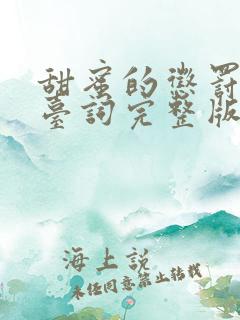 甜蜜的懲罰
臺詞完整版
海上說
未經同意禁止轉載